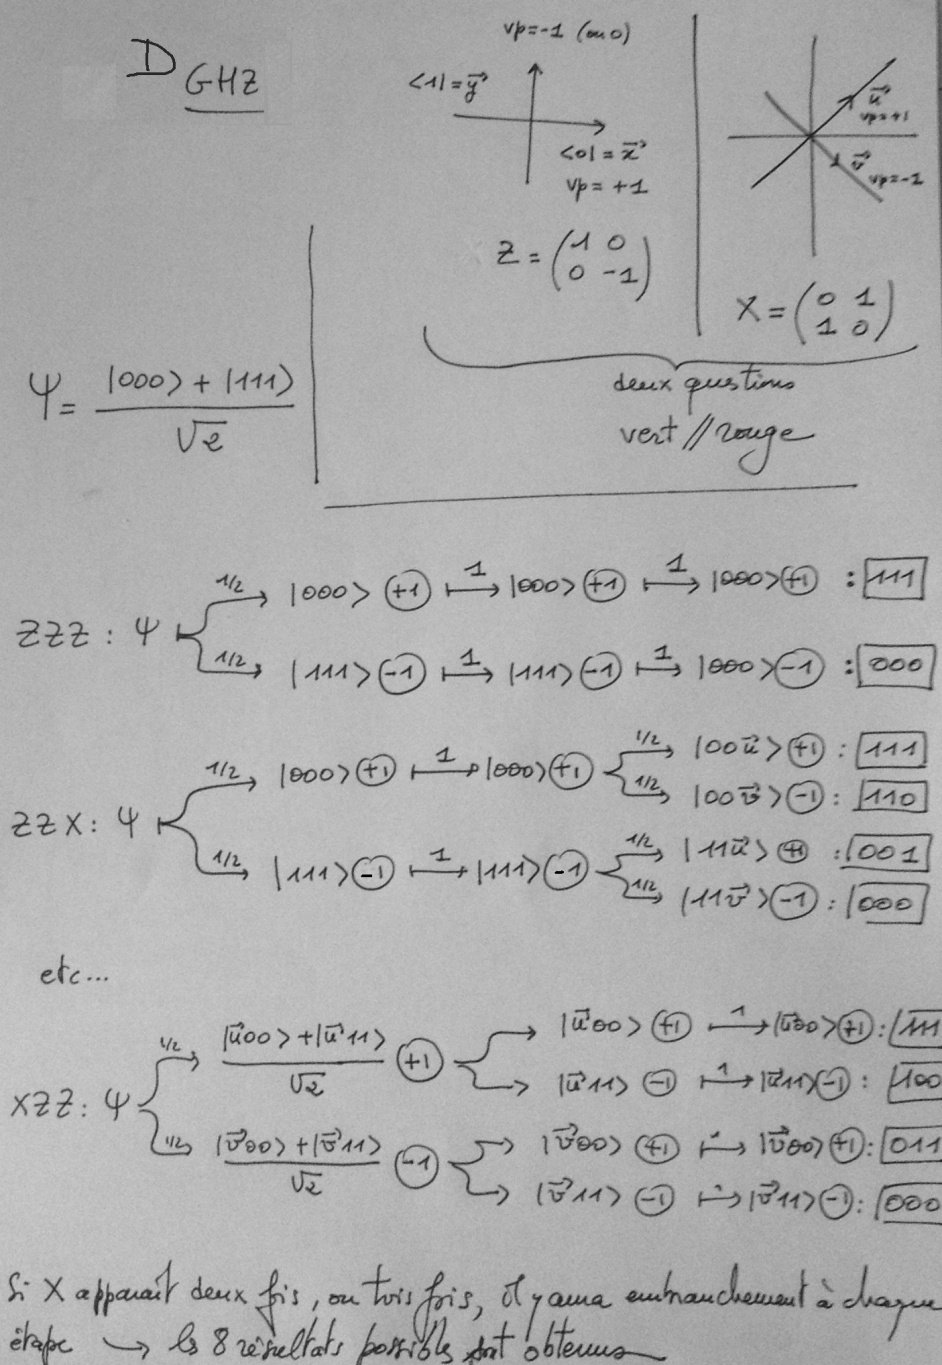 D GHZ
vp=-1 (ou 0)
<1| = y⃗
<0| = x⃗
vp = +1
u⃗
vp=+1
v⃗
vp=-1
Z = (1 0
0 -1)
X = (0 1
1 0)
Ψ = |000> + |111>
√2
deux questions
vert // rouge
ZZZ : Ψ
1/2 |000> +1 1 |000> +1 1 |000> +1 : 111
1/2 |111> -1 1 |111> -1 1 |000> -1 : 000
ZZX : Ψ
1/2 |000> +1 1 |000> +1
1/2 |00u⃗> +1 : 111
1/2 |00v⃗> -1 : 110
1/2 |111> -1 1 |111> -1
1/2 |11u⃗> +1 : 001
1/2 |11v⃗> -1 : 000
etc...
XZZ : Ψ
1/2 |u⃗00> + |u⃗11>
√2
+1
|u⃗00> +1 1 |u⃗00> +1 : 111
|u⃗11> -1 1 |u⃗11> -1 : 100
1/2 |v⃗00> + |v⃗11>
√2
-1
|v⃗00> +1 |v⃗00> +1 : 011
|v⃗11> -1 |v⃗11> -1 : 000
Si X apparait deux fis, ou trois fris, il y aura embranchement à chaque
étape → les 8 résultats possibles sont obtenus